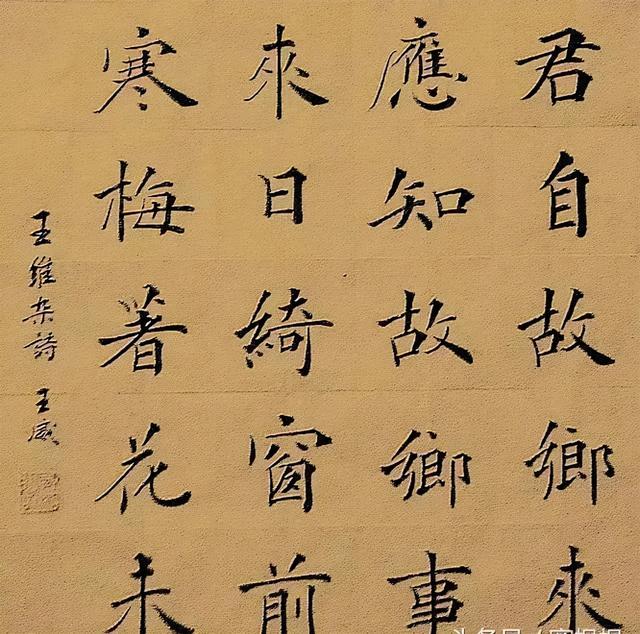 君自故鄉來
應知故鄉事
來日綺窗前
寒梅著花未
王維杂詩 王威